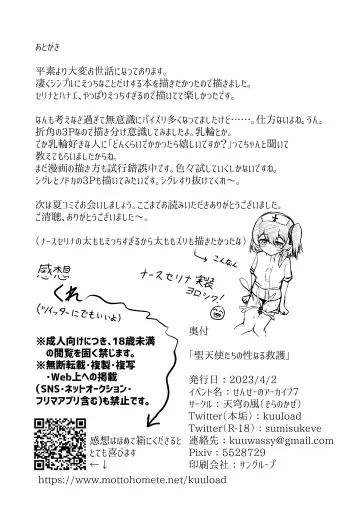 あとがき
平素より大変お世話になっております。
凄くシンプルにえっちなことだけする本を描きたかったので描きました。
セリナとハナエ、やっぱりえっちすぎるので描いてて楽しかったです。
なんも考えなさ過ぎて無意識にパイズリ多くなってましたけど……。仕方ないよね。うん。
折角の3Pなので描き分け意識してみましたよ。乳輪とか。
でか乳輪好きな人に「どんくらいでかかったら嬉しいですか?」ってちゃんと聞いて
教えてもらいましたからね。
まだ漫画の描き方も試行錯誤中です。色々試していくしかないですね。
シグレとノドカの3Pも描いてみたいです。シグレすり抜けてくれ〜。
次は夏コミでお会いしましょう。ここまでお読みいただきありがとうございました。
ご清聴、ありがとうございました〜。
(ナースセリナの太ももえっちすぎるから太ももズリも描きたかったな)
→こんなん
感想
くれ〜
(ツイッターにでもいいよ)
ナースセリナ実装
ヨロシク!
※成人向けにつき、18歳未満
の閲覧を固く禁じます。
※無断転載・複製・複写
・Web上への掲載
(SNS・ネットオークション・
フリマアプリ含む)も禁止です。
感想はほめて箱にくださると
とても喜びます
←↓
https://www.mottohomete.net/kuuload
奥付
「聖天使たちの性なる救護」
発行日:2023/4/2
イベント名:せんせーのアーカイブ7
サークル:天穹の風(そらのかぜ)
Twitter(本垢):kuuload
Twitter(R-18):sumisukeve
連絡先:kuuwassy@gmail.com
Pixiv:5528729
印刷会社:サングループ